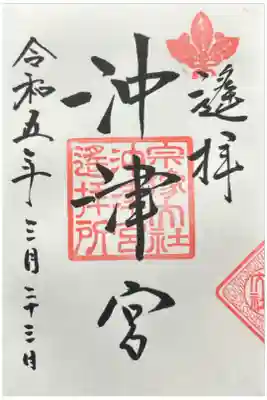 遙拝
沖津宮
宗像大社
沖津宮
遙拝所
令和五年三月二十三日